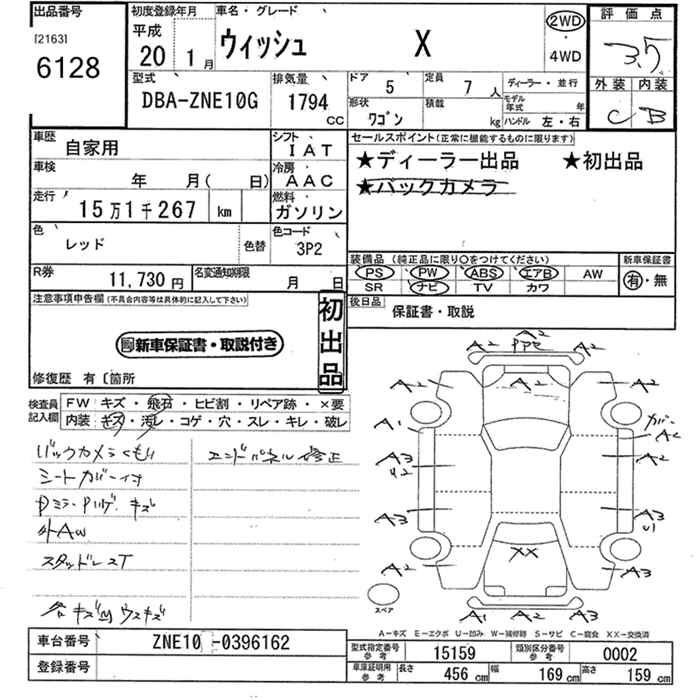 出品番号 初度登録年月 車名・グレード 評価点
[2163] 平成
6128 20年 1月 ウィッシュ X 2WD・4WD 3.5
型式 排気量 ドア 定員 ディーラー・並行 外装 内装
DBA-ZNE10G 1794cc 5 7人 モデル年式 年 C B
形状 ワゴン 積載 kg ハンドル 左・右
車歴 自家用 シフト IAT セールスポイント(正常に機能するものに限ります)
車検 年 月( 日) 冷房 AAC ★ディーラー出品 ★初出品
走行 15万1千267 km 燃料 ガソリン ★バックカメラ
色 レッド 色替 色コード 3P2
装備品(純正品に限り○をつけてください) 新車保証書
R券 11,730円 名変通知期限 月 日 PS PW ABS エアB AW 有・無
SR ナビ TV カワ
注意事項申告欄(不具合内容等は具体的に記入して下さい) 初出品 後日品 保証書・取説
新車保証書・取説付き
修復歴 有〔箇所
検査員記入欄 FW キズ・飛石・ヒビ割・リペア跡・×要
内装 キズ・汚レ・コゲ・穴・スレ・キレ・破レ
バックカメラくもり エンドパネル修正
シートカバー付
外AW
スタッドレスT
A2 A2 A2
A2 A2
A1 A2
A3 A2
A3 A3
U1
A2 XX A3
スペア A1 A2
A-キズ E-エクボ U-凹み W-補修跡 S-サビ C-腐食 XX-交換済
車台番号 ZNE10 -0396162
登録番号
型式指定番号 参考 15159 類別区分番号 参考 0002
車庫証明用 参考 長さ 456cm 幅 169cm 高さ 159cm